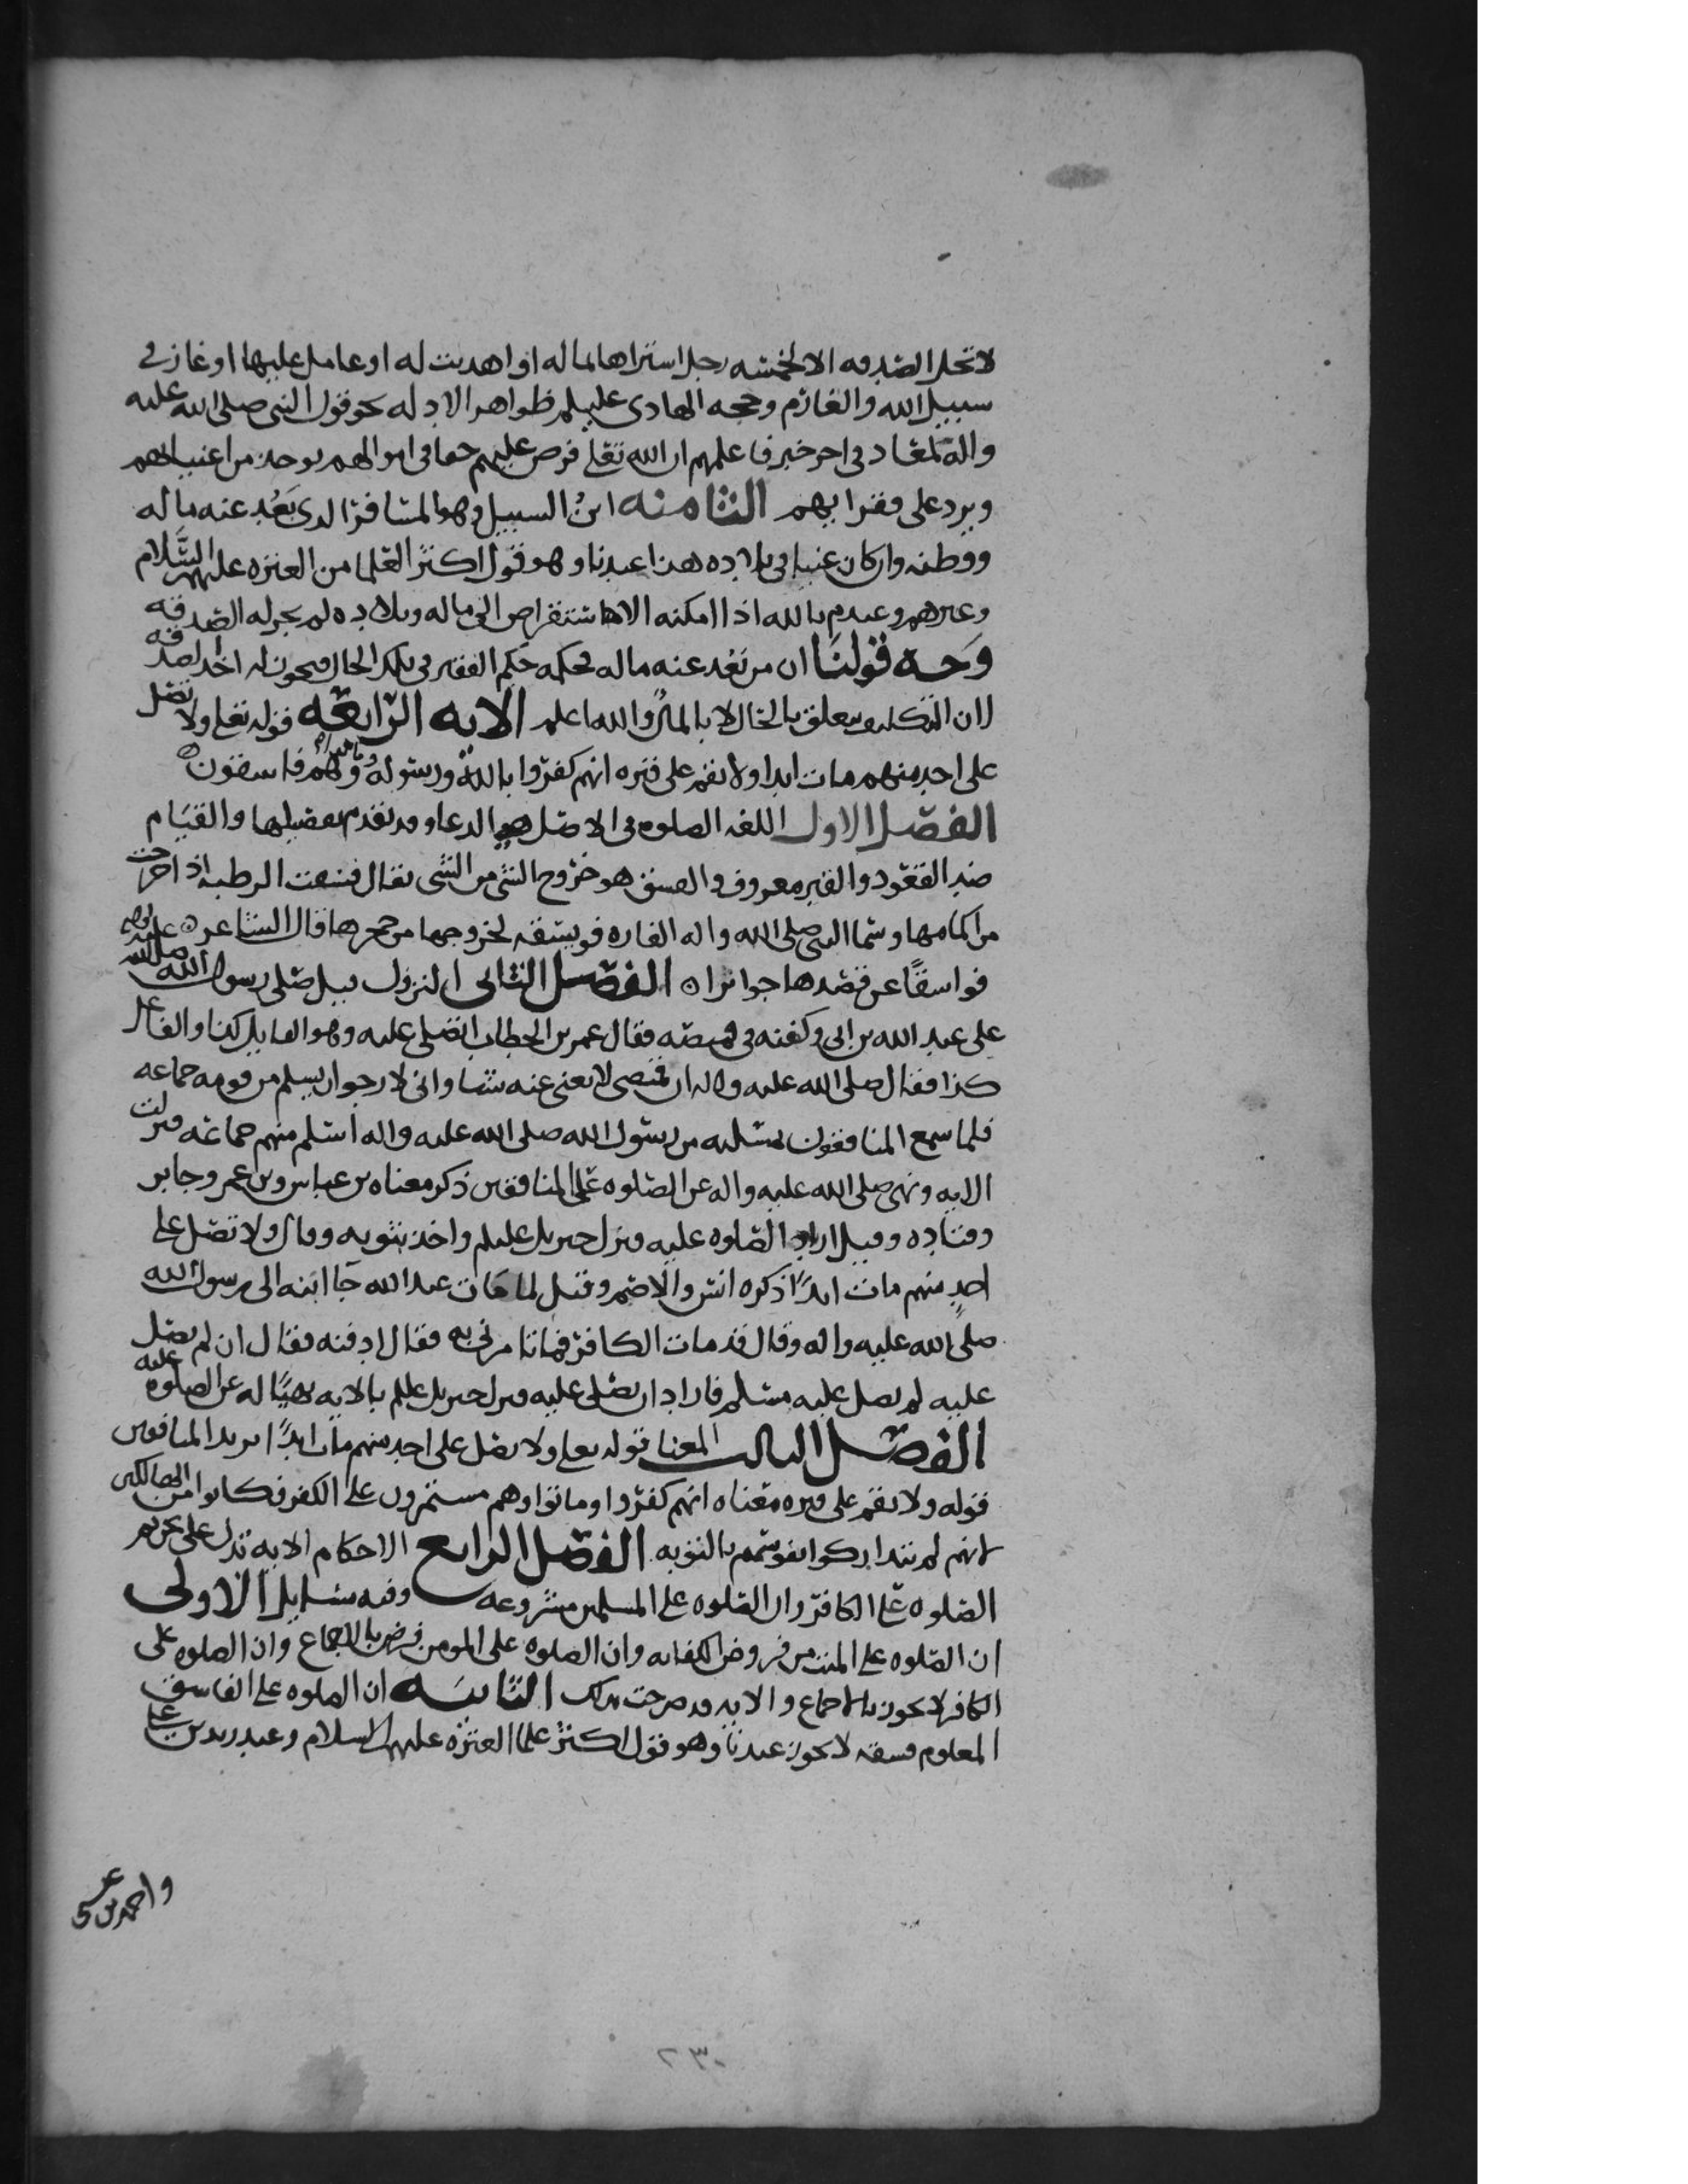 لا تحل الصدقه الا لخمسه رجل اشتراها لماله او اهديت له او عامل عليها او غاز في
سبيل الله والغارم وحجه الهادي عليلم ظواهر الادله نحو قول النبي صلى الله عليه
واله لمعاد في اخر خبر فاعلمهم ان الله تعلى فرض عليهم حقا في اموالهم يوخذ من اغنيايهم
ويرد على فقرايهم الثامنه ابن السبيل وهو المسافر الدى بَعُد عنه ماله
ووطنه وان كان غنيا في بلاده هذا عندنا وهو قول اكثر العلما من العتره عليهم السَّلام
وغيرهم وعندم بالله اذا امكنه الاستقراض الى ماله وبلاده لم يجز له الصدقه
وَجه قولنَا ان من بَعُد عنه ماله فحكمه حكم الفقير في تلك الحال فيجوز له اخذ الصدقه
لان التكليف يتعلق بالحال لا بالمال والله اعلم الايه الرابعه قوله تعلى ولا تصل
على احد منهم مات ابدا ولا تقم على قبره انهم كفروا بالله ورسوله وماتوا وهم فاسقون
الفصل الاول اللغه الصلوه في الاصل هو الدعا وقد تقدم تفصيلها والقيَام
ضد القعود والقبر معروف والفسق هو خروج الشي من الشي يقال فسقت الرطبه اذ اخرجت
من اكمامها وسما النبي صلى الله واله الفاره فويسقه لخروجها من جحرها قال الشاعر
فواسقًا عن قصدها جوائرا الفصل الثاني النزول قيل صلى رسول الله صلى الله عليه واله
على عبد الله بن ابي وكفنه في قميصه فقال عمر بن الخطاب اتصلي عليه وهو القايل كذا والفاعل
كذا فقال صلى الله عليه واله ان قميصي لا يغني عنه شيا واني لارجو ان يسلم من قومه جماعه
فلما سمع المنافقون مسله من رسول الله صلى الله عليه واله اسلم منهم جماعه فنزلت
الايه ونهى صلى الله عليه واله عن الصلوه على المنافقين ذكر معناه بن عباس وبن عمر وجابر
وقتاده وقيل اراد الصلوه عليه فنزل جبريل عليلم واخذ بثوبه وقال ولا تصل على
احدٍ منهم مات ابدًا ذكره انس والاصم وقيل لما مات عبد الله جا ابنه الى رسول الله
صلى الله عليه واله وقال قد مات الكافر فما تامرني به فقال ادفنه فقال ان لم تصل
عليه لم يصل عليه مسلم فاراد ان يصلى عليه فنزل جبريل عليلم بالايه نهيًا له عن الصلوه عليه
الفصل الثالث المعنا قوله تعلى ولا تصل على احد منهم مات ابدًا يريد المنافقين
قوله ولا تقم على قبره معناه انهم كفروا وماتوا وهم مستمرون على الكفر فكانوا من الهالكين
لانهم لم يتداركوا نفوسهم بالتوبه الفصل الرابع الاحكام الايه تدل على تحريم
الصلوه على الكافر وان الصلوه على المسلمين مشروعه وفيه مسايل الاولى
ان الصلوه على الميت من فروض الكفايه وان الصلوه على المومن فرض بالاجماع وان الصلوه على
الكافر لا يجوز بالاجماع والايه قد صرحت بذلك الثانيه ان الصلوه على الفاسق
المعلوم فسقه لا يجوز عندنا وهو قول اكثر علما العتره عليهم السلام وعند زيد بن علي
واحمد بن عيسى
٢٣٠